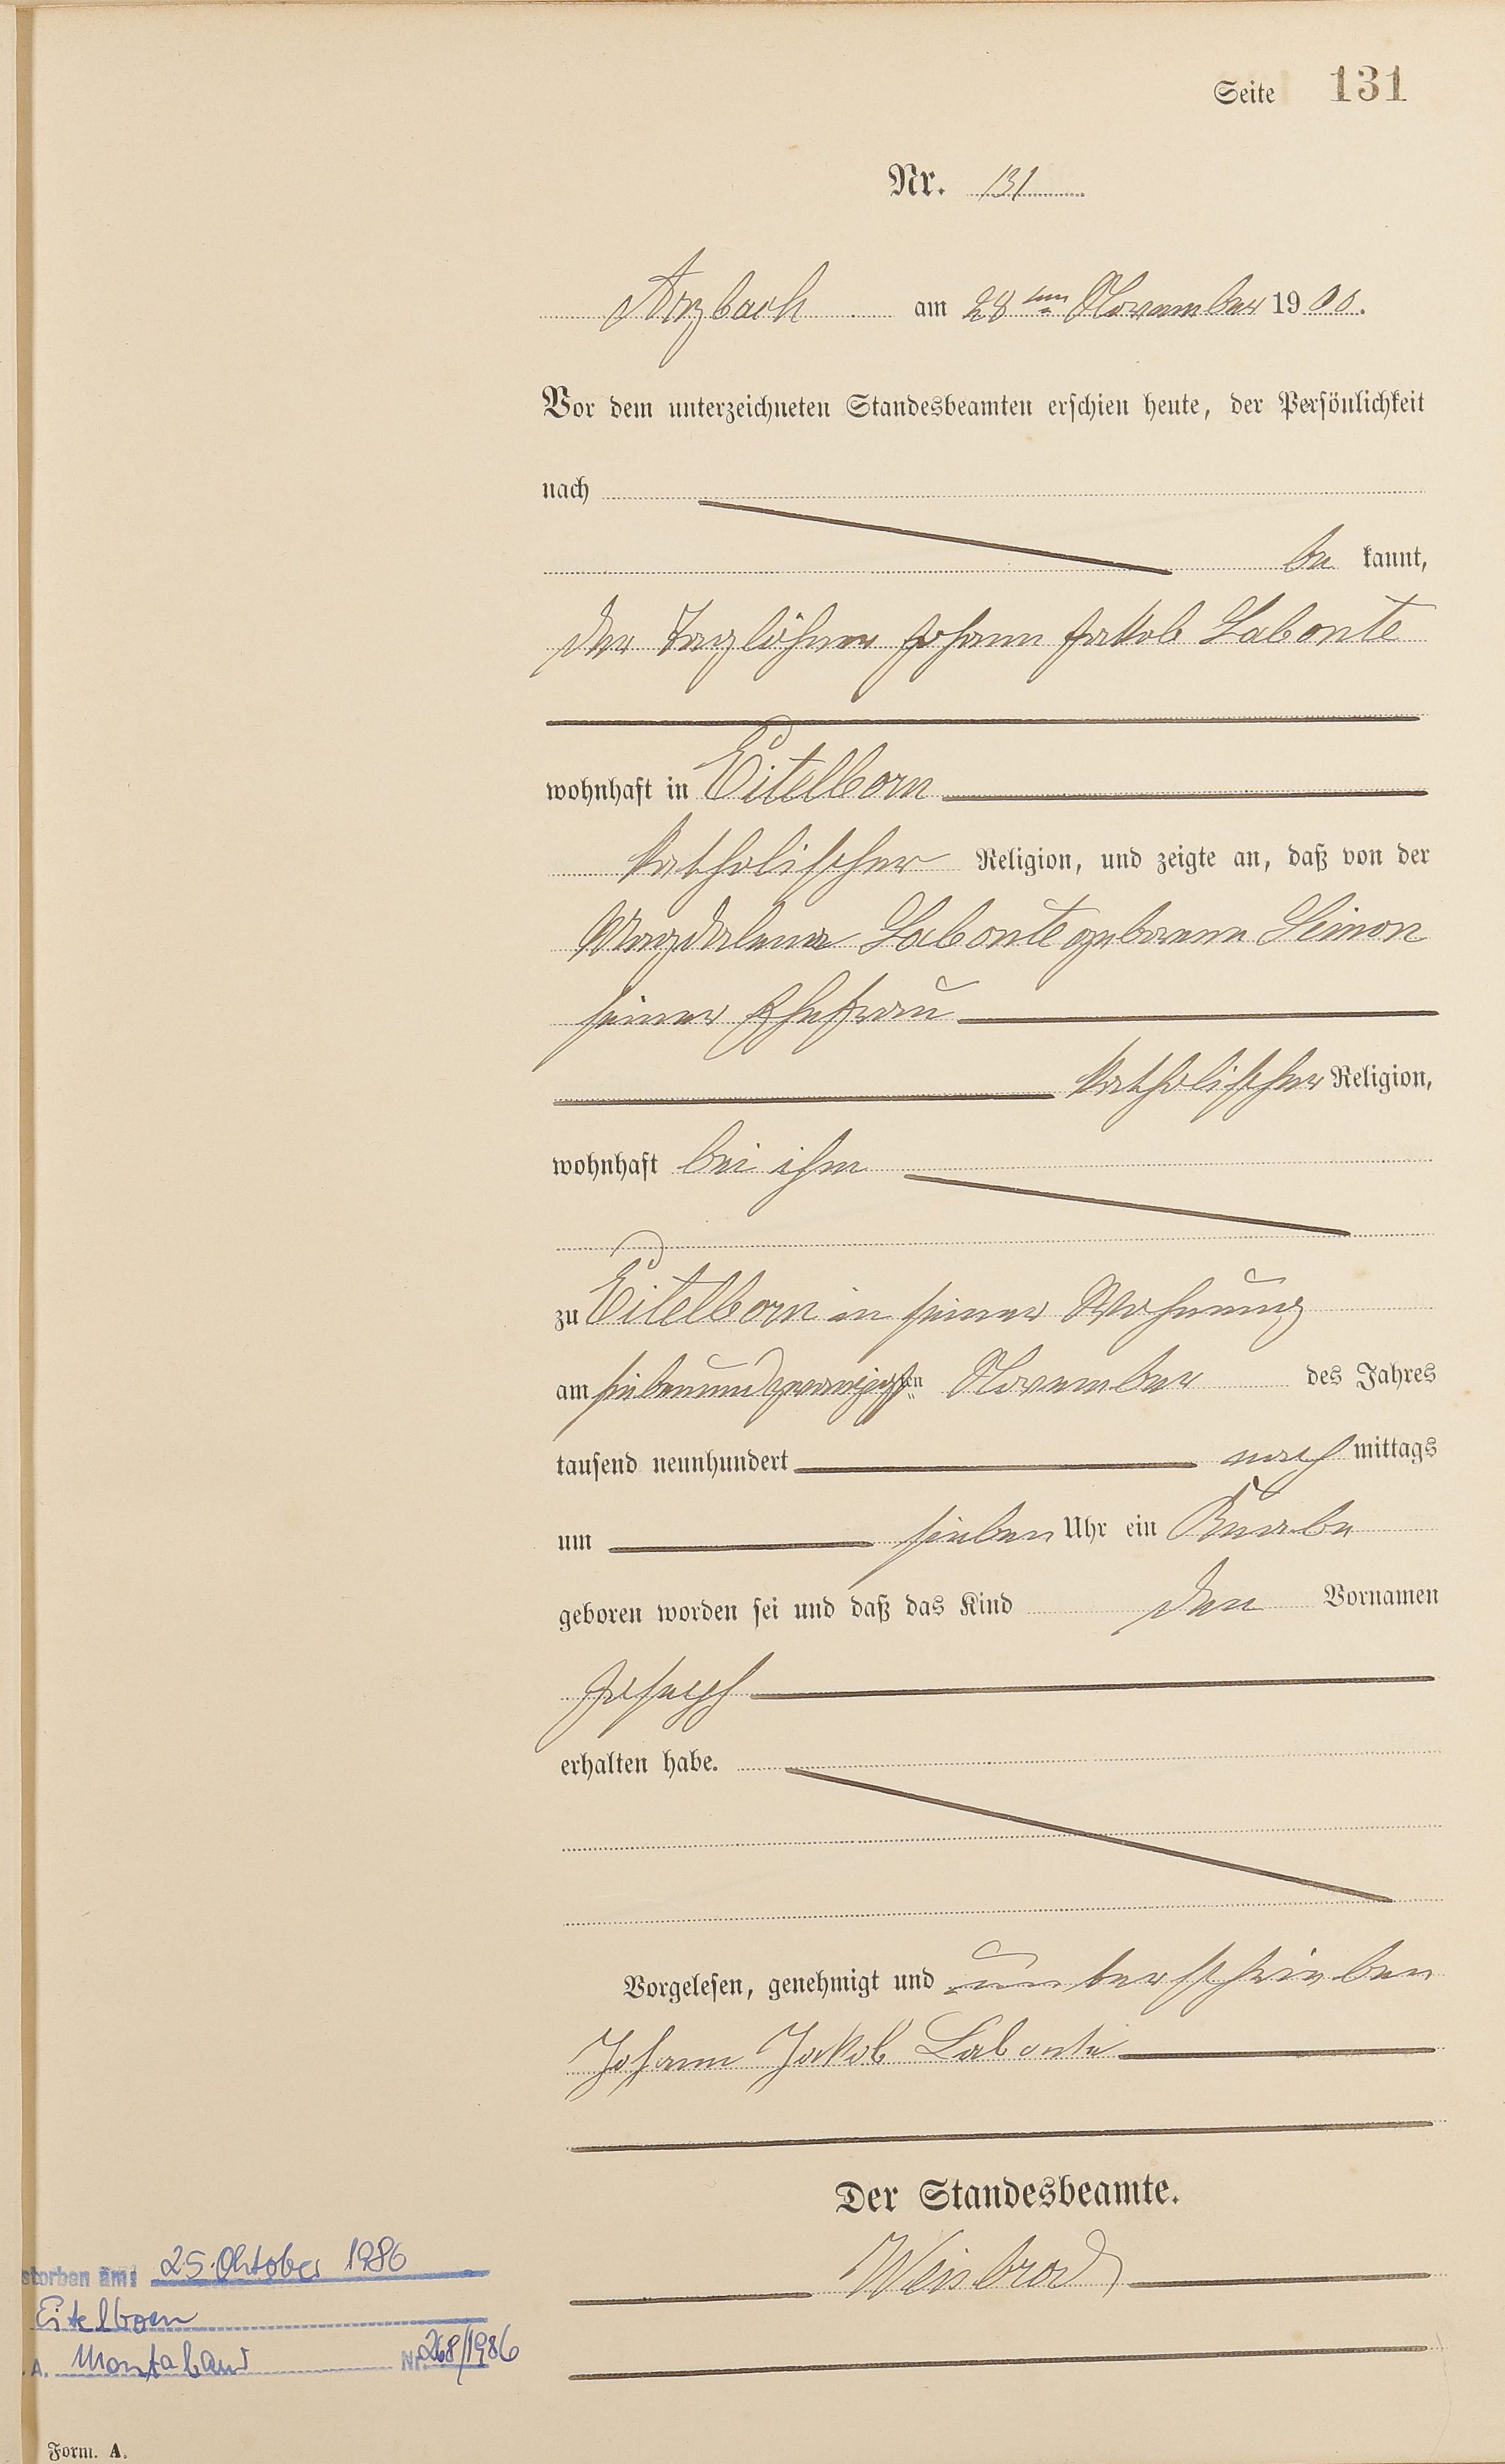 Seite 131
Nr. 131
Arzbach am 28ten November 1900.
Vor dem unterzeichneten Standesbeamten erschien heute, der Persönlichkeit
nach
be kannt,
der Taglöhner Johann Jakob Labonte
wohnhaft in Eitelborn
katholischer Religion, und zeigte an, daß von der
Magdalena Labonte geborene Simon
seiner Ehefrau
katholischer Religion,
wohnhaft bei ihm
zu Eitelborn in seiner Wohnung
am siebenundzwanzigsten November des Jahres
tausend neunhundert nach mittags
um sieben Uhr ein Knabe
geboren worden sei und daß das Kind den Vornamen
Joseph
erhalten habe.
Vorgelesen, genehmigt und unterschrieben
Johann Jakob Labonte
Der Standesbeamte.
Weisbrod
storben am: 25. Oktober 1986
Eitelborn
.A. Montabaur Nr. 268/1986
Form. A.